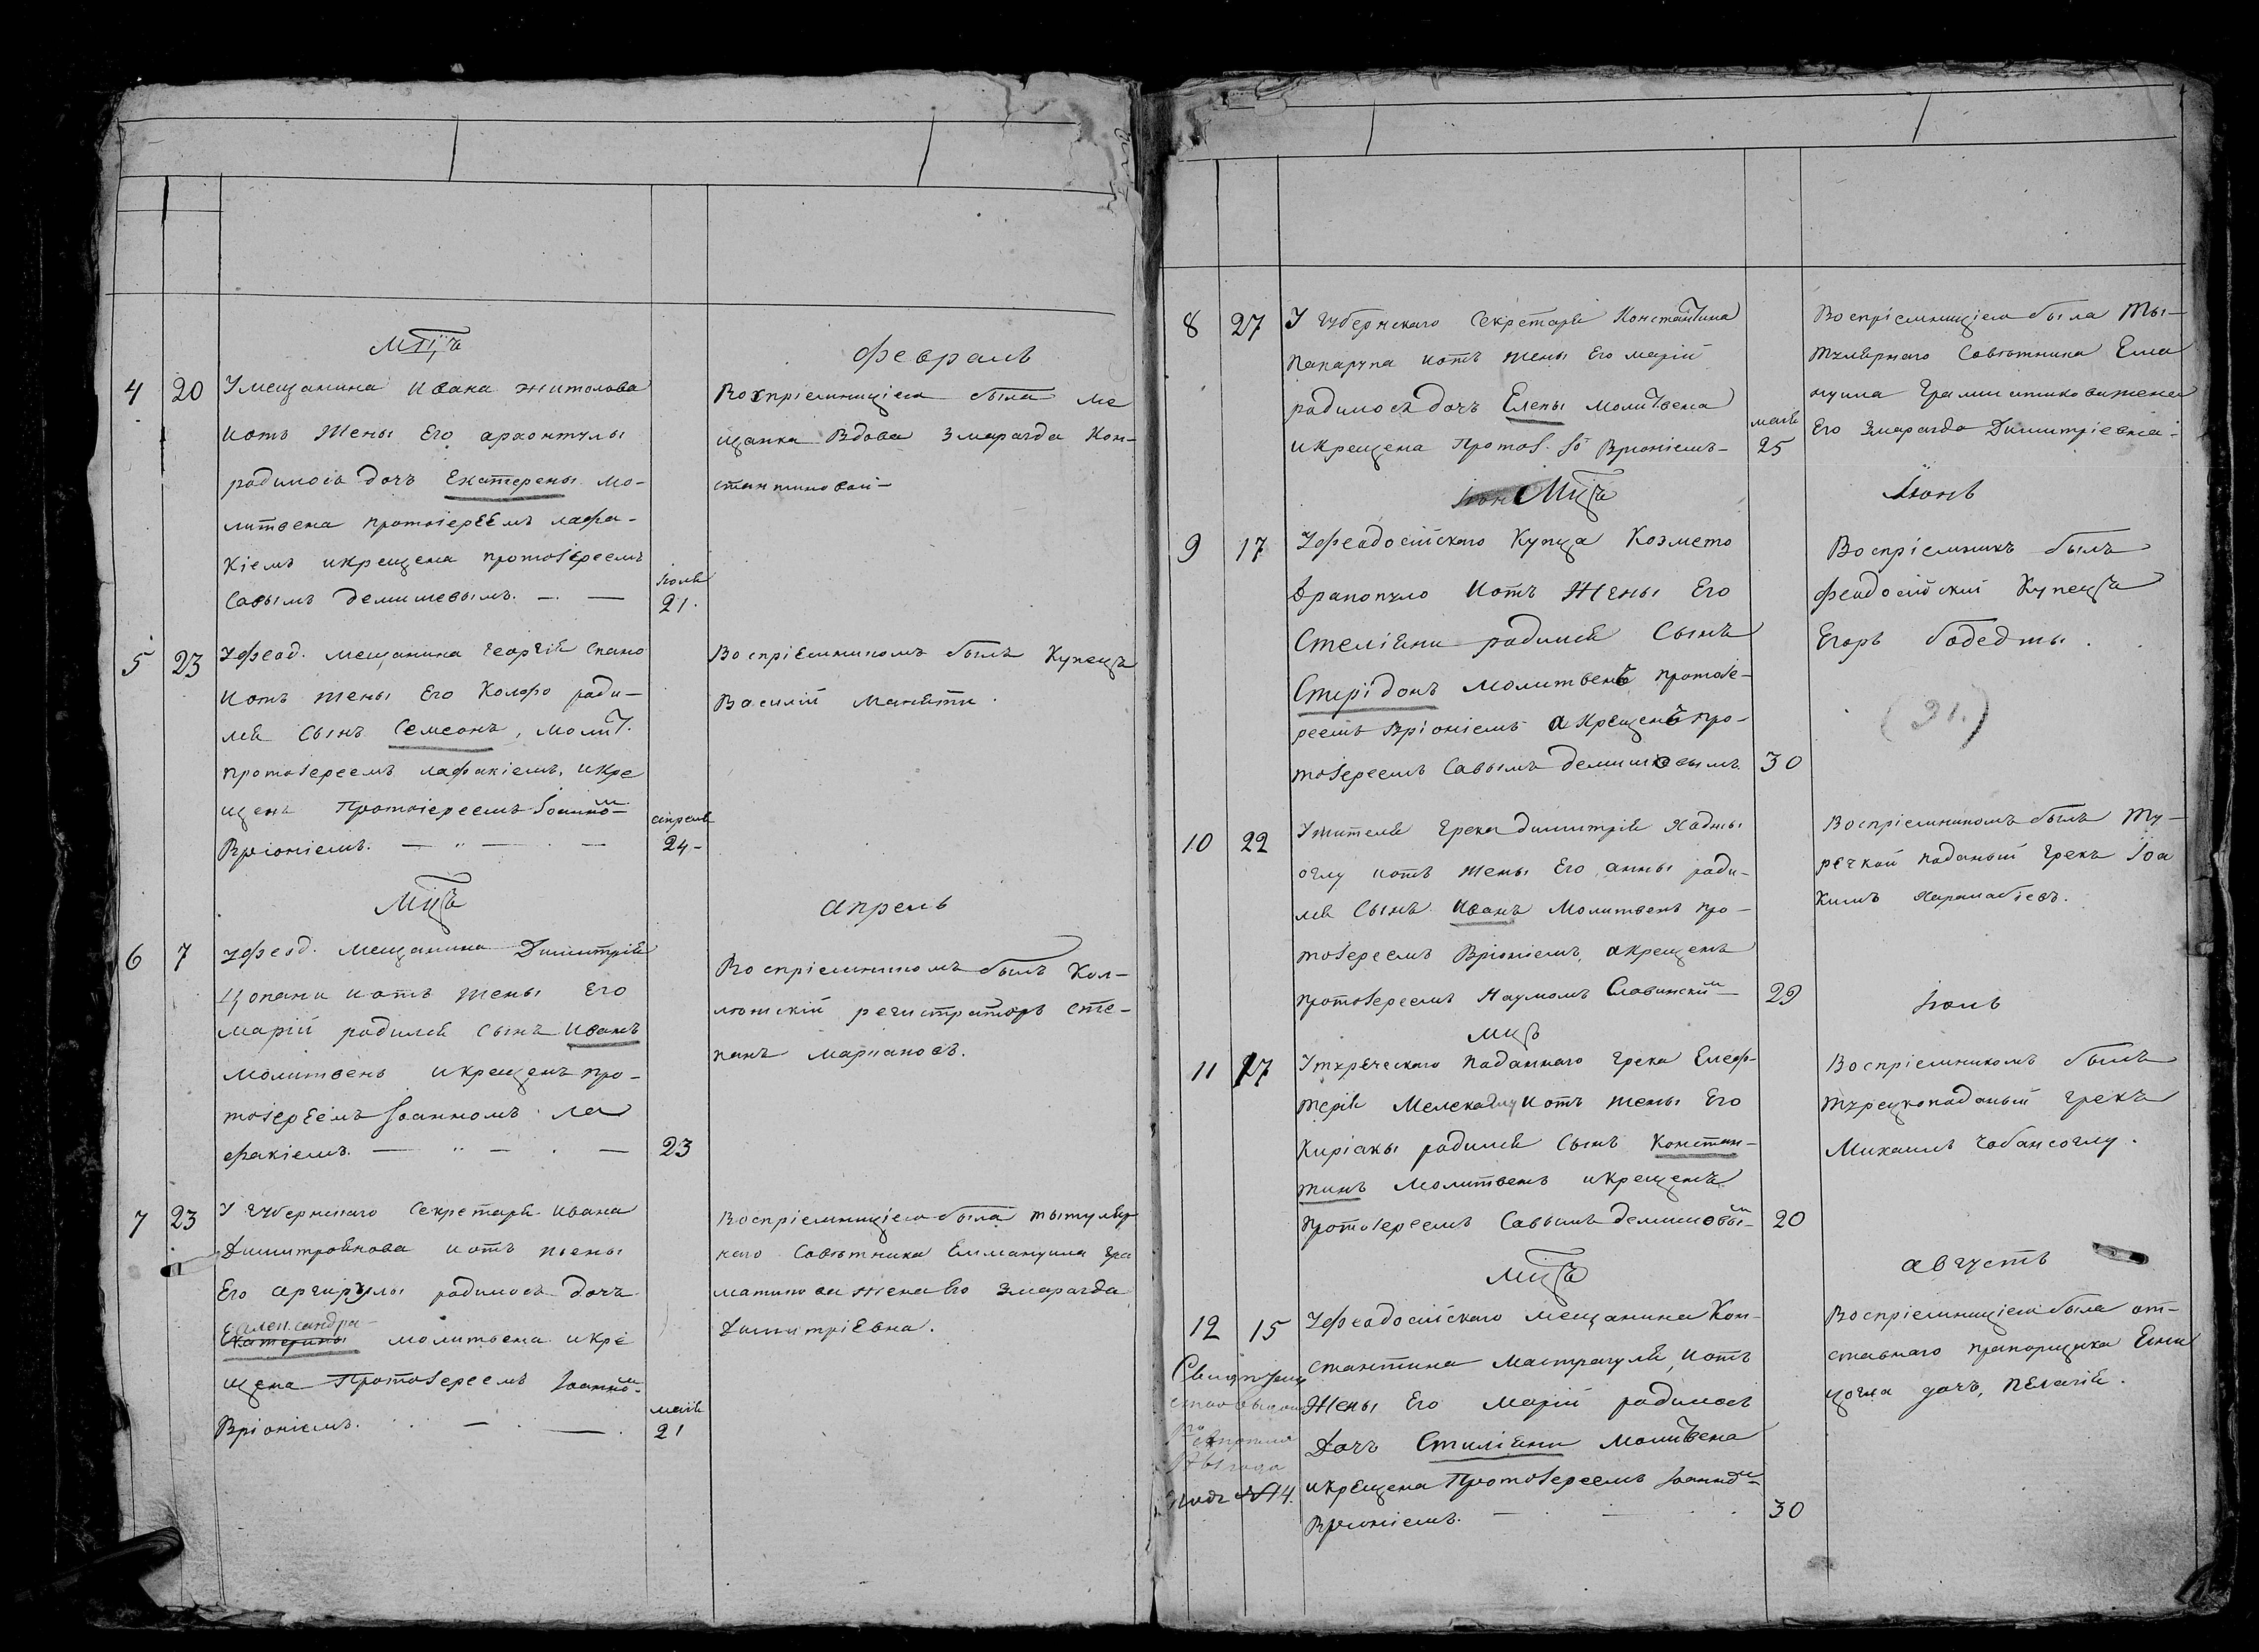 Мцъ
Февраль
4 20 У мещанина Ивана Житолова
и отъ жены его Архонтулы
радилось дочъ Екатерены мо-
литвена протоіереемъ Лафа-
кіемъ и крещена протоіереемъ
Савымъ Демишевымъ. — —
Іюля
21.
Воспріемниціею была ме
щанка Вдова Змарагда Кон-
стантиновай—
5 23 У Феод. мещанина Георгія Спано
и отъ жены его Коляфо ради-
ля сынъ Семеонъ, молит.
протоіереемъ Лафакіемъ, и кре
щенъ Протоіереемъ Іоанно м
Вріоніемъ. — „ — . —
апреля
24-
Воспріемникомъ былъ Купецъ
Василій Манети.
Мцъ
Апрель
6 7 У Феод. мещанина Димитрія
Цопани и отъ жены его
Марій радился сынъ Иванъ
молитвенъ и крещенъ про-
тоіереемъ Іоанномъ Ла
факіемъ. — „ — . —
23
Воспріемникомъ былъ Кол-
лежскій регистраторъ Сте-
панъ Маргановъ.
7 23 У Губернскаго Секретаря Ивана
Димитроѣнова и отъ жены
его Аргирулы радилось дочъ
Александра
Екатерины молитвена и кре
щена Протоіереемъ Іоанно м
Вріоніемъ. . — — .
маія
21
Воспріемниціею была тытуляр
наго Совѣтника Еммануила Гра
матикова жена Его Змарагда
Димитріевна.
8 27 У Губернскаго Секретаря Константина
Папарупа и отъ жены Его Марій
радилось дочъ Елены молитвена
и крещена Протоі. Іо Вріоніемъ—
маія
25
Воспріемниціею была Ты-
тулярнаго Совѣтника Емма
нуила Грамматикова жена
Его Змарагда Димитріевна.
Мцъ
Іюнь
9 17 У Феодосійскаго Купца Козмето
Драпопуло и отъ жены Его
Стеліяни радился сынъ
Спирідонъ молитвенъ протоіе-
реемъ Вріоніемъ а крещенъ про-
тоіереемъ Савымъ Демишевымъ.
30
Воспріемникъ былъ
Феодосійскій Купецъ
Егоръ Бодеджы.
10 22 У жителя Грека Димитрія Хаджы
оглу и отъ жены Его Анны ради-
ля сынъ Иванъ молитвенъ про-
тоіереемъ Вріоніемъ, а крещенъ
протоіереемъ Наумомъ Славински м
29
Воспріемникомъ былъ Ту-
речкой поданый Грекъ Іоа
кимъ Харалабіевъ.
Мцъ
Іюль
11 17 У турѣческаго Поданнаго Грека Елеф-
терія Мелекоглу и отъ жены Его
Киріаны радился сынъ Констан-
тинъ молитвенъ и крещенъ
Протоіереемъ Савымъ Демишовы м
20
Воспріемникомъ былъ
турецкоподаный Грекъ
Михаилъ Чобансоглу.
Мцъ
Августъ
12 15 У Феодосійскаго мещанина Кон-
стантина Мастрагуля и отъ
жены Его Марій радилось
дочъ Стиліяни молитвена
и крещена Протоіереемъ Іоанно м
Вріоніемъ. — . — .
30
Воспріемниціею была от-
ставнаго прапорщика
дочъ, Пелагія.